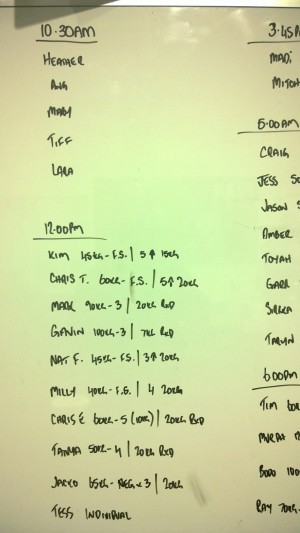 10.30AM
HEATHER
MARY
TIFF
LARA
12.00PM
KIM 45KG - F.S. | 5 ↑ 15KG
CHRIS T. 60KG - F.S. | 5 ↑ 20KG
MARK 90KG - 3 | 20KG RXD
GAVIN 100KG - 3 | 7KG RXD
NAT F. 45KG - F.S. | 3 ↑ 20KG
MILLY 40KG - F.S. | 4 20KG
CHRIS E 60KG - 5 (10KG) | 20KG RXD
TANYA 50KG - 4 | 20KG RXD
JACKO 65KG - NEG x 3 | 20KG
TESS INDIVIDUAL
3.45P
MADI
MITCH
5.00AM
CRAIG
JESS
JASON
AMBER
TOYAH
GARR
TARYN
6:00PM
TIM 60K
MURAT
BODO 100
RAY 70KG